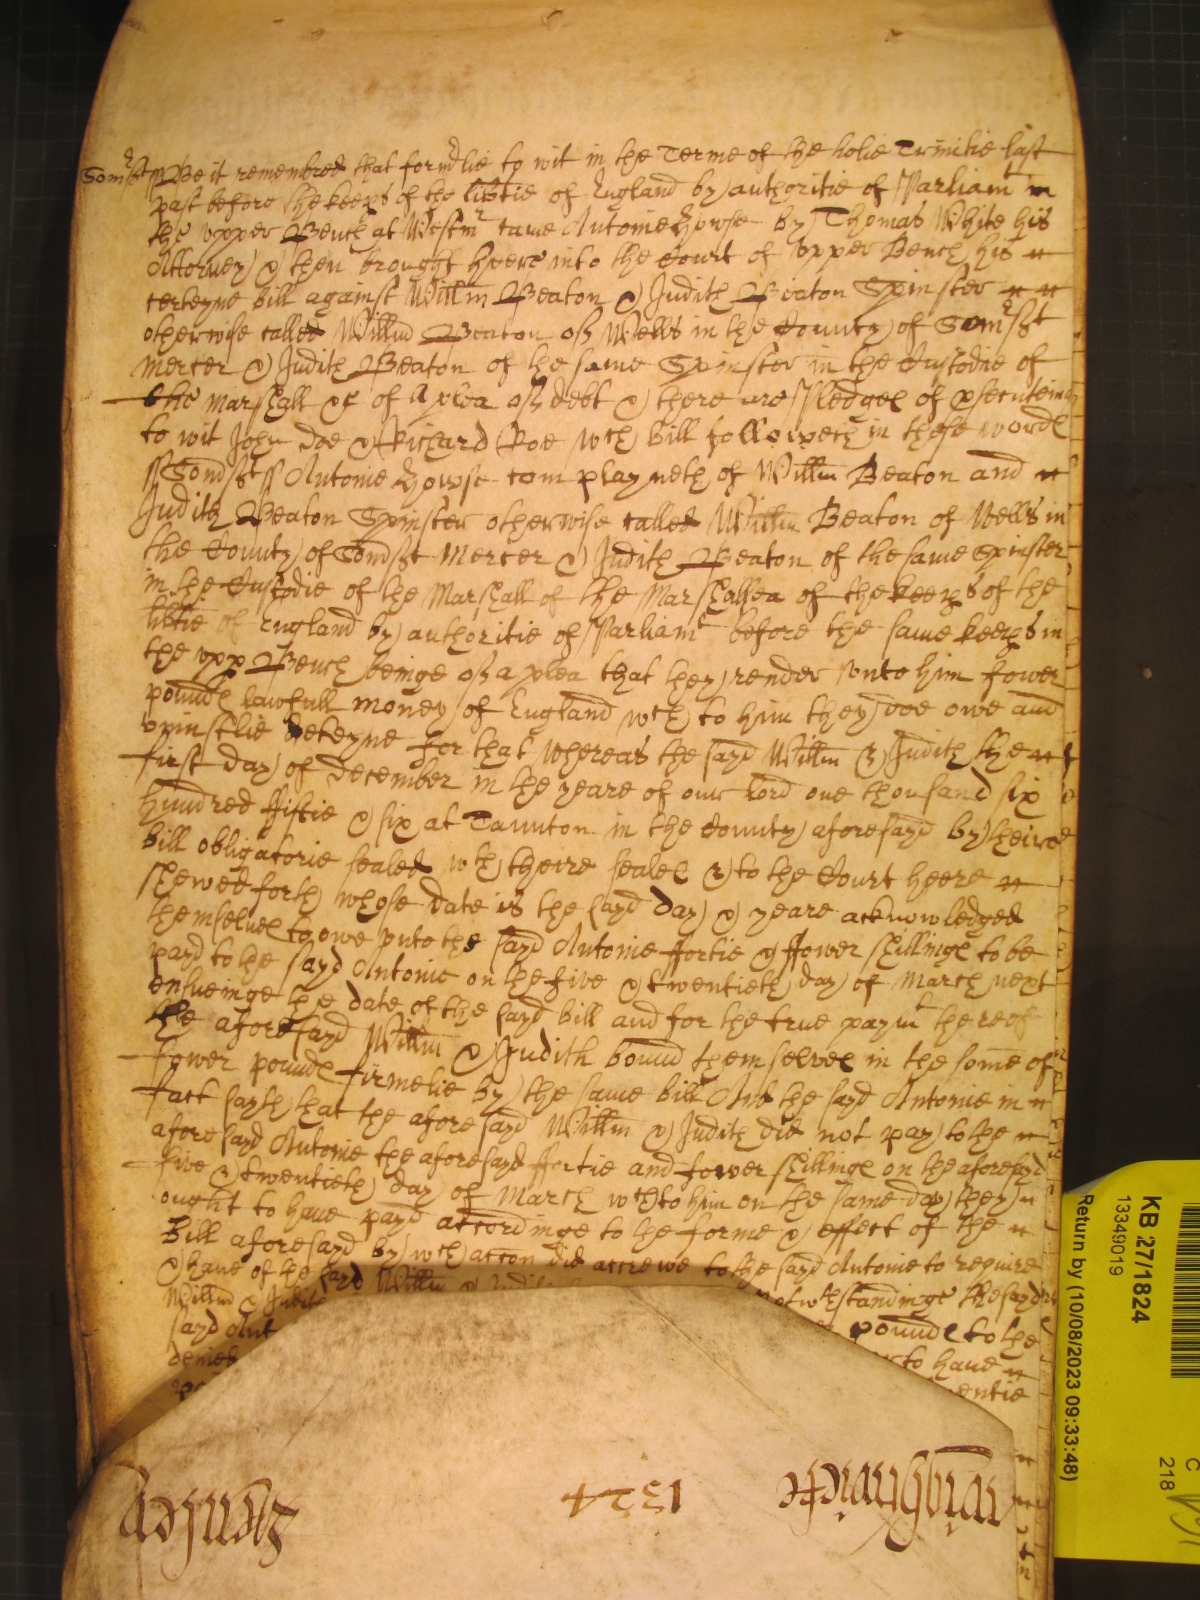 Somset ss Be it remembred that formlie to wit in the Terme of the holie Trinitie last
past before the keeps of the libtie of England by authoritie of Parliamt in
the upper Bench at Westmr came Antonie Howse by Thomas White his
Attorney & then brought heere into the Court of upper Bench his
certeyne bill against Willm Beaton & Judith Beaton Spinster
otherwise called Willm Beaton of Wells in the County of Somset
mercer & Judith Beaton of the same Spinster in the Custodie of
the Marshall &c of A plea of debt & there are Pledges of psecuteing
to wit John Doe & Richard Roe wch bill followeth in these words
ss Somset ss Antonie Howse complayneth of Willm Beaton and
Judith Beaton Spinster otherwise called Willm Beaton of Wells in
the County of Somset Mercer & Judith Beaton of the same Spinster
in the Custodie of the Marshall of the Marshalsea of the keeps of the
libtie of England by authoritie of Parliamt before the same keeps in
the upp Bench beinge of a plea that they render unto him fower
pounds lawfull money of England wch to him they doe owe and
uniustlie deteyne for that whereas the sayd Willm & Judith the
first day of December in the yeare of our Lord one thousand six
hundred fiftie & six at Taunton in the County aforesayd by theire
bill obligatorie sealed wth theire seales & to the Court heere
shewed forth whose date is the sayd day & yeare acknowledged
themselves to owe unto the sayd Antonie fortie & fower shillings to be
payd to the sayd Antonie on the five & twentieth day of March next
ensueinge the date of the sayd bill and for the true paymt thereof
the aforesayd Willm & Judith bound themselves in the some of
fower pounds firmelie by the same bill And the sayd Antonie in
fact sayth that the aforesayd Willm & Judith did not pay to the
aforesayd Antonie the aforesayd fortie and fower shillings on the aforesayd
five & twentieth day of March wch to him on the same day they
ought to have payd accordinge to the forme & effect of the
Bill aforesayd by wch accon did accrewe to the sayd Antonie to require
& have of the sayd Willm & Judith
Willm & Judith notwthstandinge the sayd
sayd Ant pounds to the
denied to have
KB 27/1824
13349019
Return by (10/08/2023 09:33:48)
C
218
1324